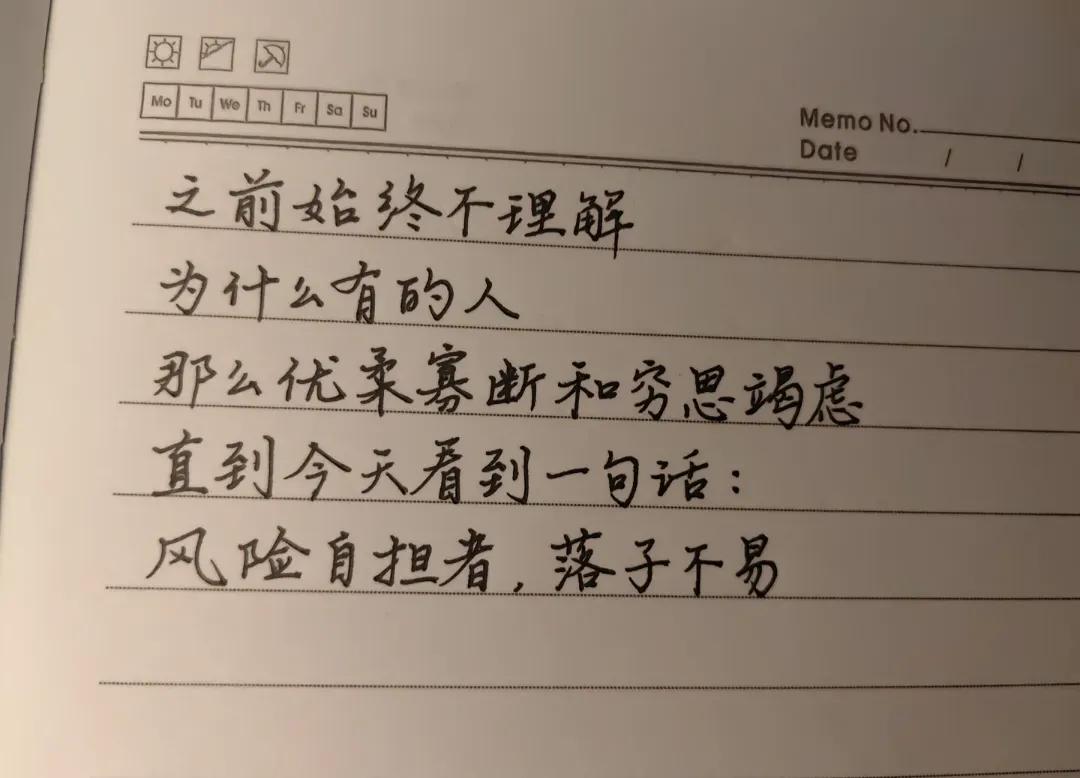 Mo Tu We Th Fr Sa Su
Memo No.
Date / /
之前始终不理解
为什么有的人
那么优柔寡断和穷思竭虑
直到今天看到一句话：
风险自担者，落子不易